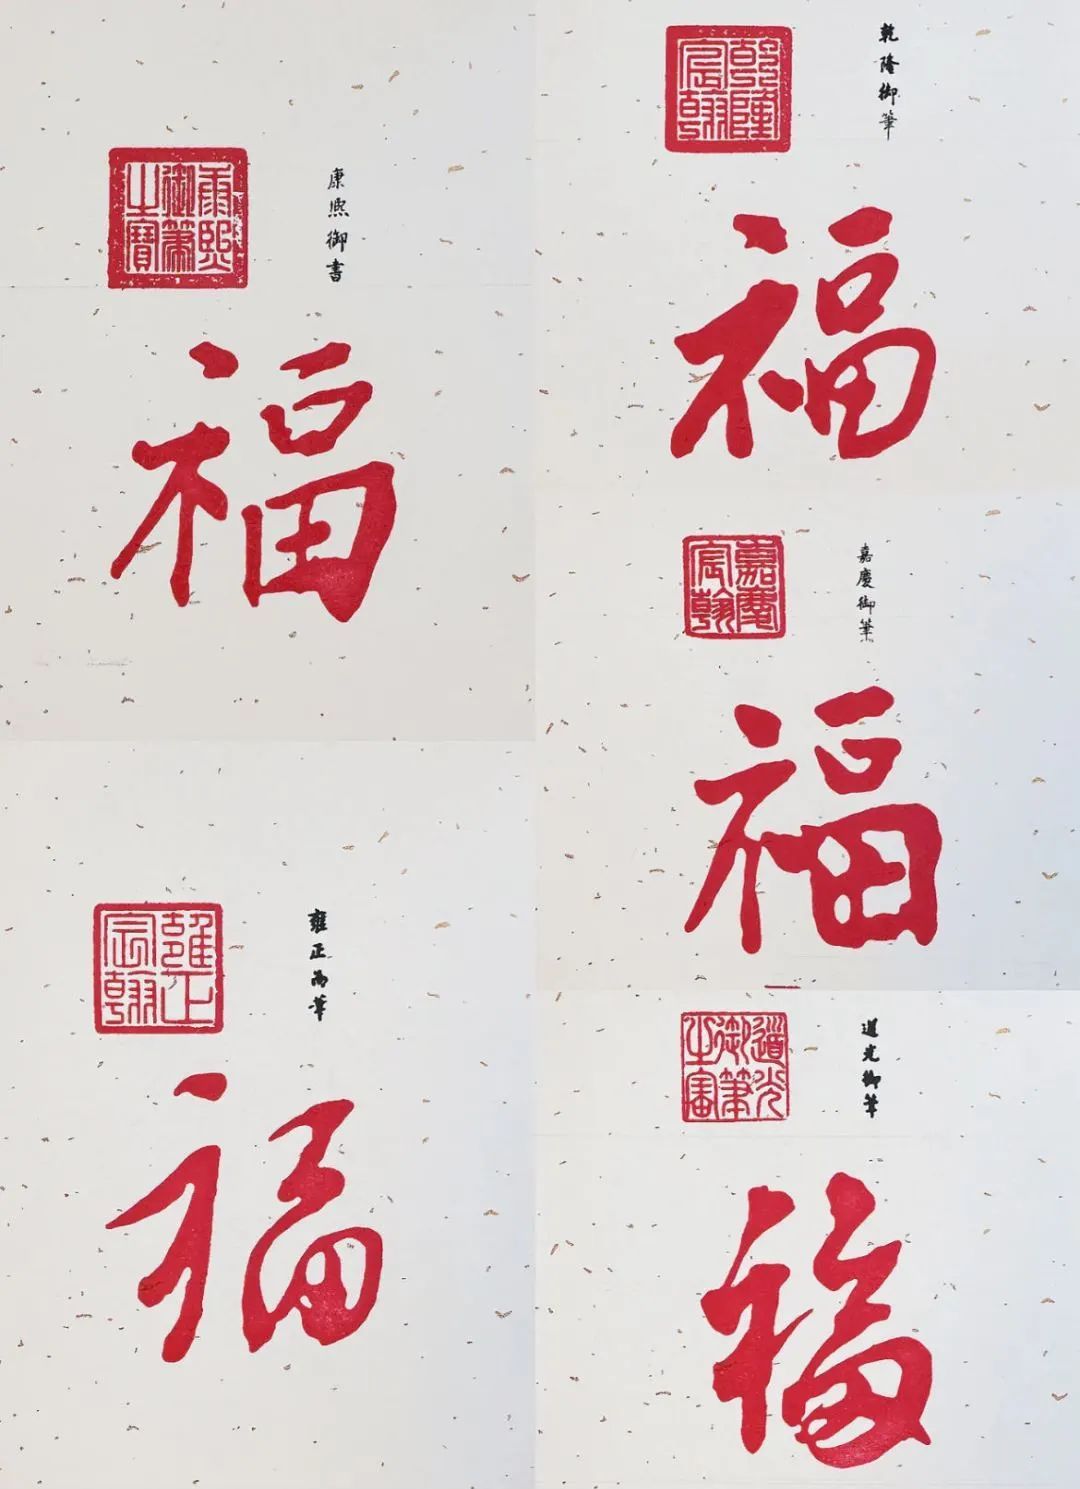 康熙御筆之寶
康熙御書
福
乾隆宸翰
乾隆御筆
福
雍正宸翰
雍正御筆
福
嘉慶宸翰
嘉慶御筆
福
道光御筆之寶
道光御筆
福